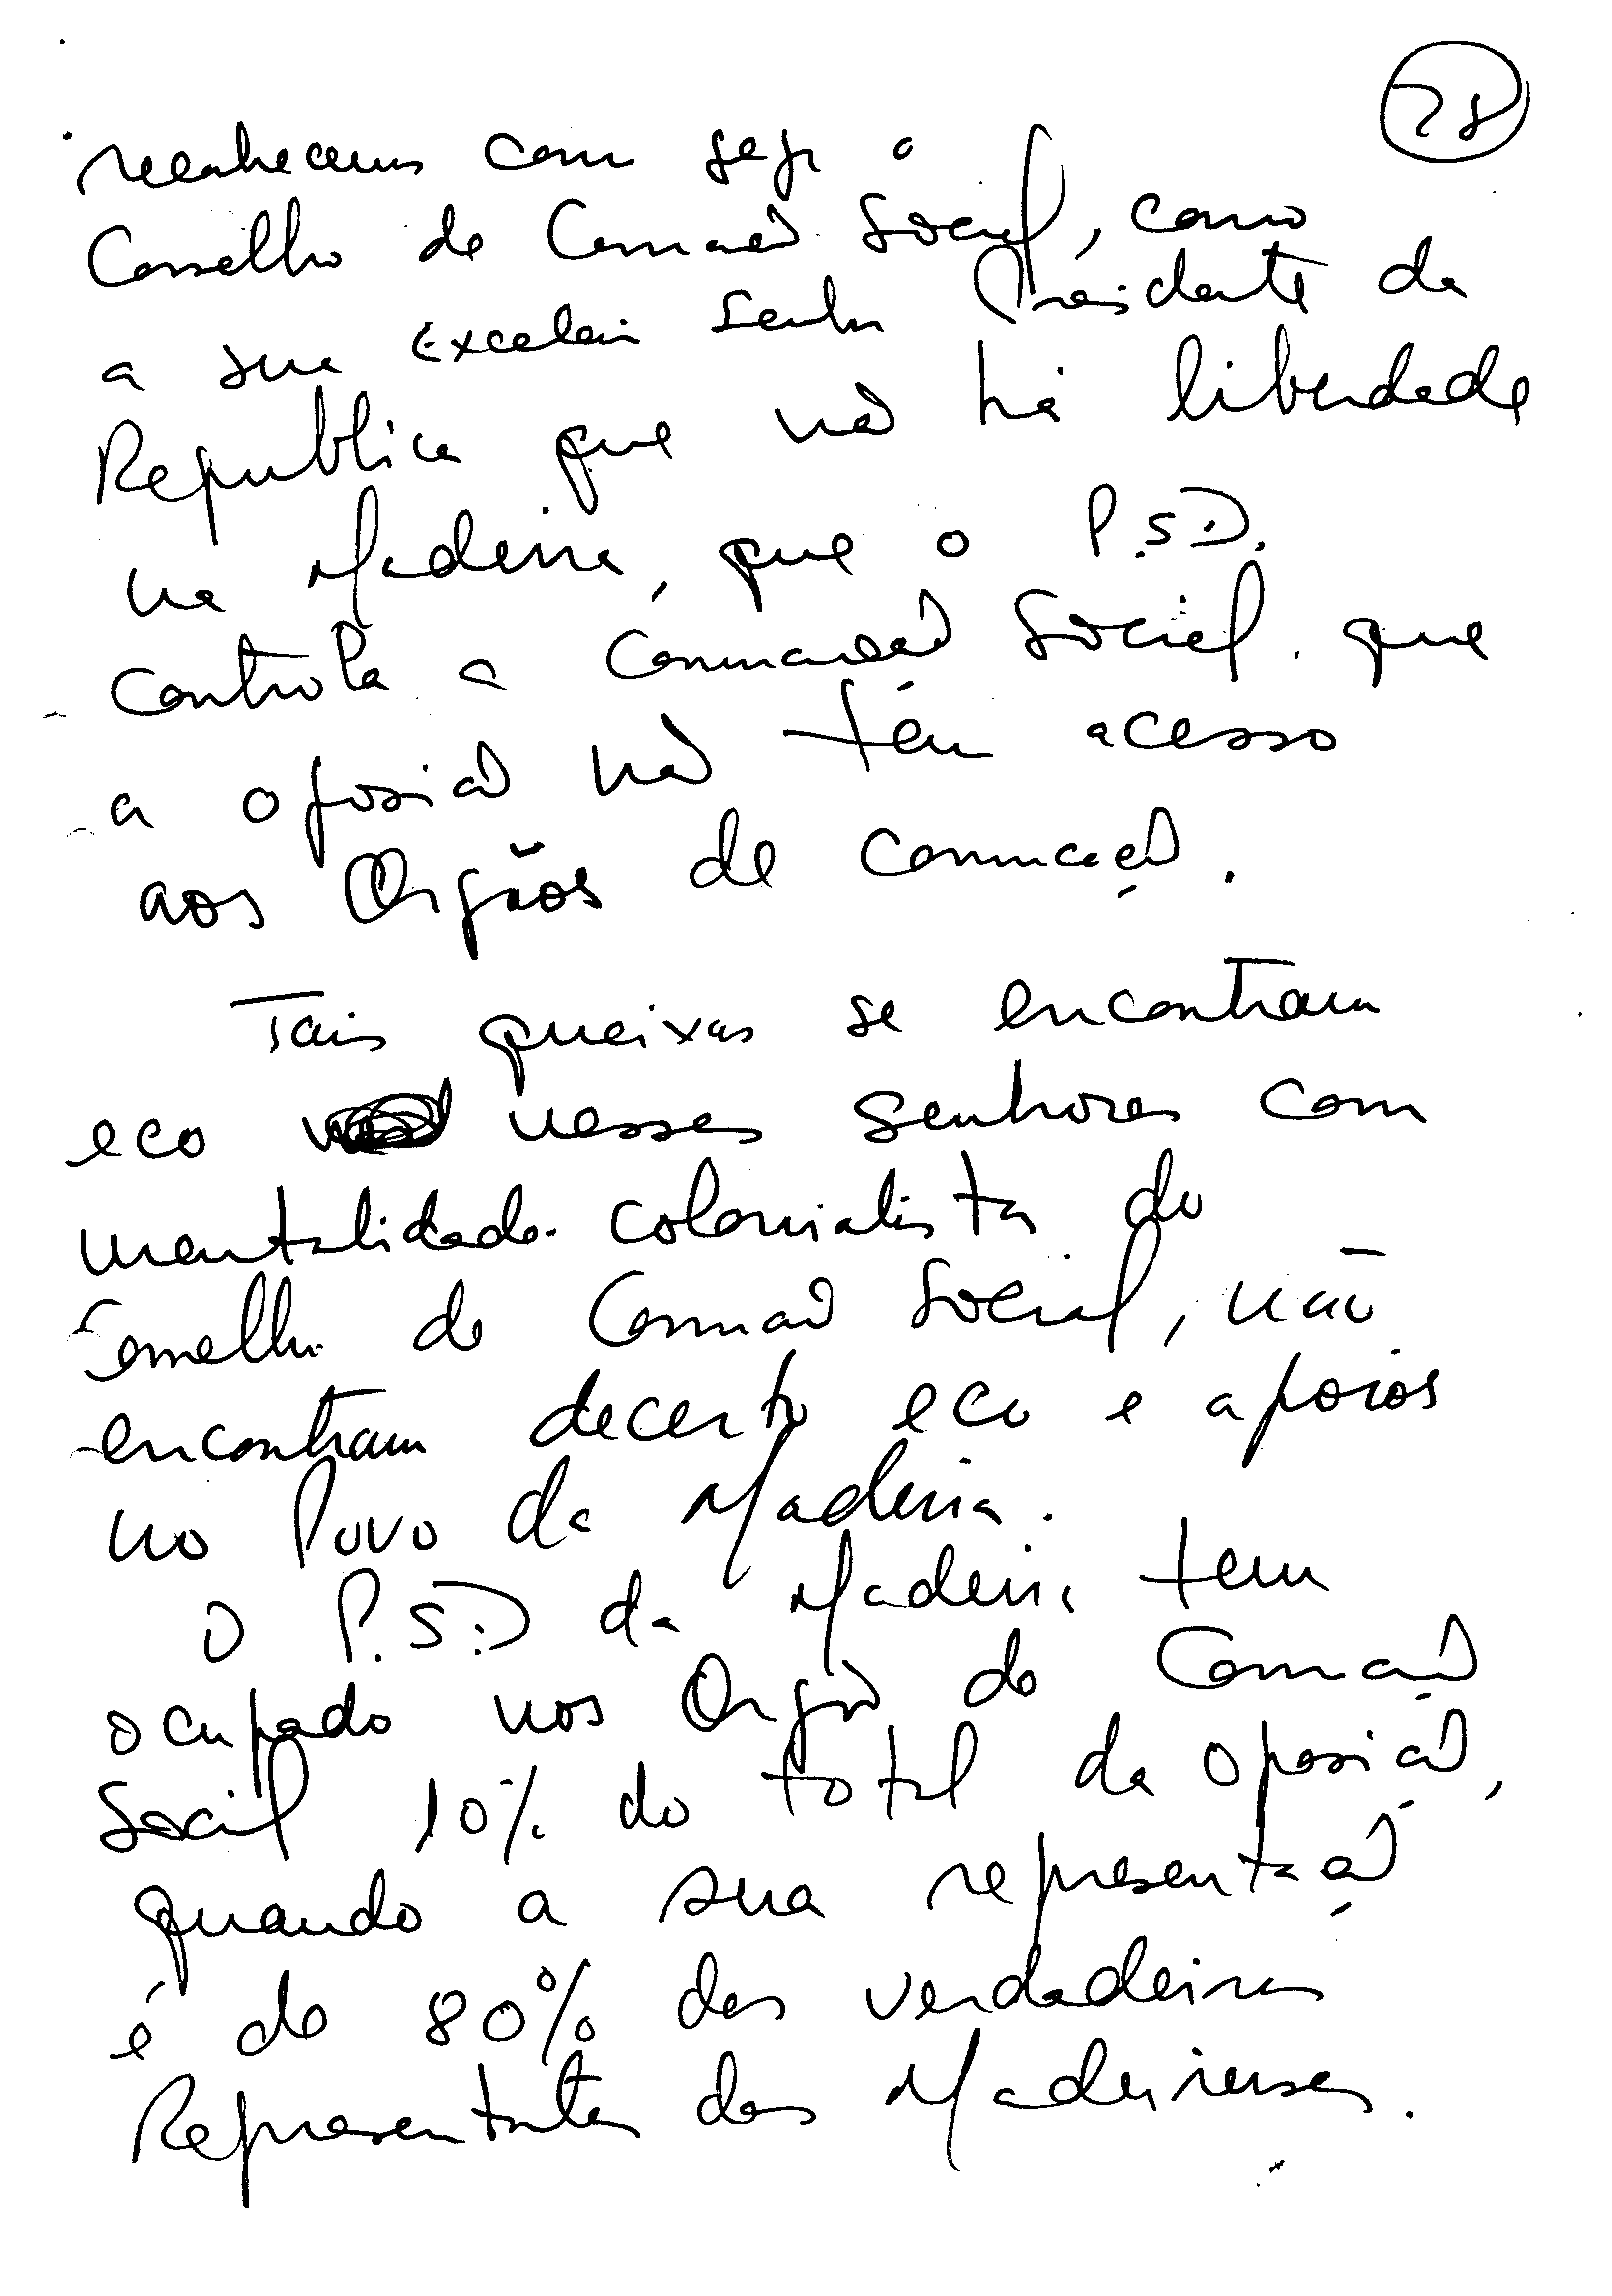 28
reconhecemos como seja o
Conselho de Comunicação Social, como
a sua Excelencia Senhor Presidente da
Republica que não há liberdade
na Madeira, que o P.S.D.
controla a Comunicação Social. que
a oposição não têm acesso
aos Orgãos de comunicação.
Tais queixas se encontram
eco nesses senhores com
mentalidade colonialista do
Conselho de Comunicação Social, não
encontram decerto eco e apoios
no Povo da Madeira.
O P.S.D da Madeira tem
ocupado nos Orgão de Comunicação
Social 10% do total da oposição,
quando a sua representação
é de 80% dos verdadeiros
Representantes dos Madeirenses.